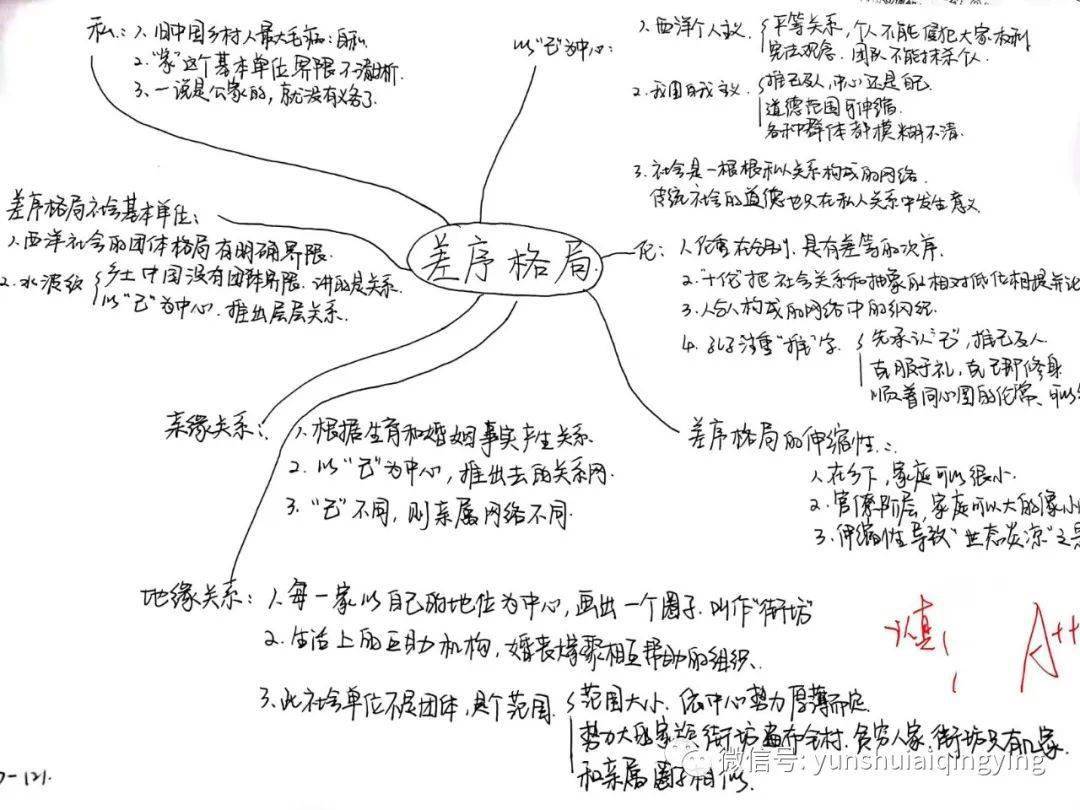 私：1、旧中国乡村人最大毛病：自私
2."家"这个基本单位界限不清晰.
3、一说是公家的，就没有义务了
以"己"为中心：
1、西洋个人主义. 平等关系，个人不能侵犯大家权利
宪法观念. 团队不能抹杀个人.
2.我国自我主义. 推己及人，中心还是自己.
道德范围可伸缩.
各种群体都模糊不清.
3.社会是一根根私人关系构成的网络.
传统社会的道德也只在私人关系中发生意义
差序格局社会基本单位：
1、西洋社会的团体格局有明确界限.
2.水波纹 乡土中国没有团体界限. 讲的是关系.
以"己"为中心. 推出层层关系.
差序格局.
伦：1、伦重在分别. 具有差等的次序.
2."十伦"把社会关系和抽象的相对低位相提并论
3.人与人构成的网络中的纲纪.
4.孔子注重"推"字. 先承认"己"，推己及人
克服于礼，克己即修身
顺着同心圆的伦常、可以
亲缘关系： 1、根据生育和婚姻事实产生关系.
2.以"己"为中心，推出去的关系网.
3."己"不同，则亲属网络不同.
差序格局的伸缩性：
1、在乡下，家庭可以很小.
2.官僚阶层，家庭可以大的像小
3.伸缩性导致"世态炎凉"之
地缘关系： 1、每一家以自己的地位为中心，画出一个圈子. 叫作"街坊"
2.生活上的互助机构，婚丧 相互帮助的组织.
3.此社会单位不是团体，是个范围. 范围大小. 依中心势力厚薄而定
势力大的家 街坊遍布全村. 贫穷人家. 街坊只有几家.
和亲属圈子相似.
认真！ A++
微信号: yunshuaiqingying
-121.